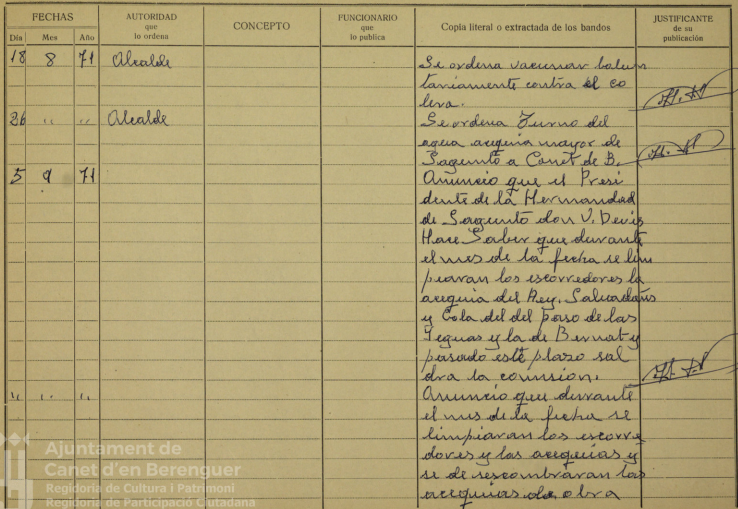 FECHAS
AUTORIDAD
que
lo ordena
CONCEPTO
FUNCIONARIO
que
lo publica
Copia literal o extractada de los bandos
JUSTIFICANTE
de su
publicación
Día Mes Año
18 8 71 Alcalde Se ordena vacunar bolun
tariamente contra el co
lera.
26 " " Alcalde Se ordena Turno del
agua acequia mayor de
Sagunto a Canet de B.
5 9 71 Anuncio que el Presi
dente de la Hermandad
de Sagunto don V. Devis
Hace Saber que durante
el mes de la fecha se lim
piaran los escorredores la
acequia del Rey, Salvadañs
y Cola del del paso de las
Yeguas y la de Bernat y
pasado este plazo sal
dra la comision.
" " " Anuncio que durante
el mes de la fecha se
limpiaran los escorre
dores y las acequias y
se desescombraran las
acequias de obra
Ajuntament de
Canet d'en Berenguer
Regidoria de Cultura i Patrimoni
Regidoria de Participació Ciutadana